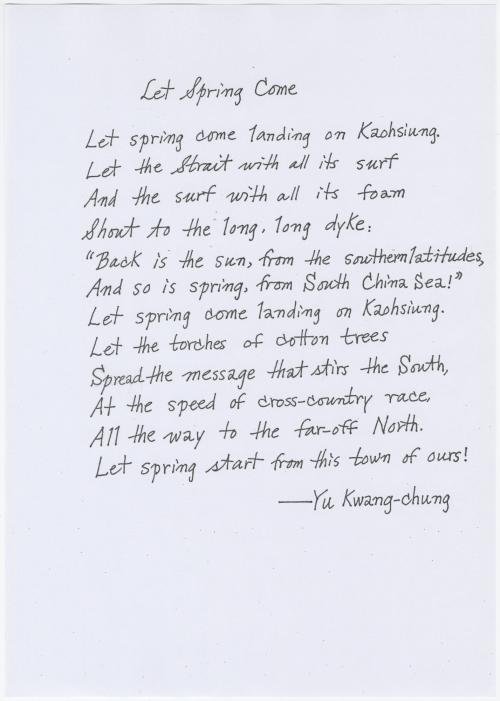 Let Spring Come
Let spring come landing on Kaohsiung.
Let the Strait with all its surf
And the surf with all its foam
Shout to the long, long dyke:
"Back is the sun, from the southern latitudes,
And so is spring, from South China Sea!"
Let spring come landing on Kaohsiung.
Let the torches of cotton trees
Spread the message that stirs the South,
At the speed of cross-country race,
All the way to the far-off North.
Let spring start from this town of ours!
——Yu Kwang-chung